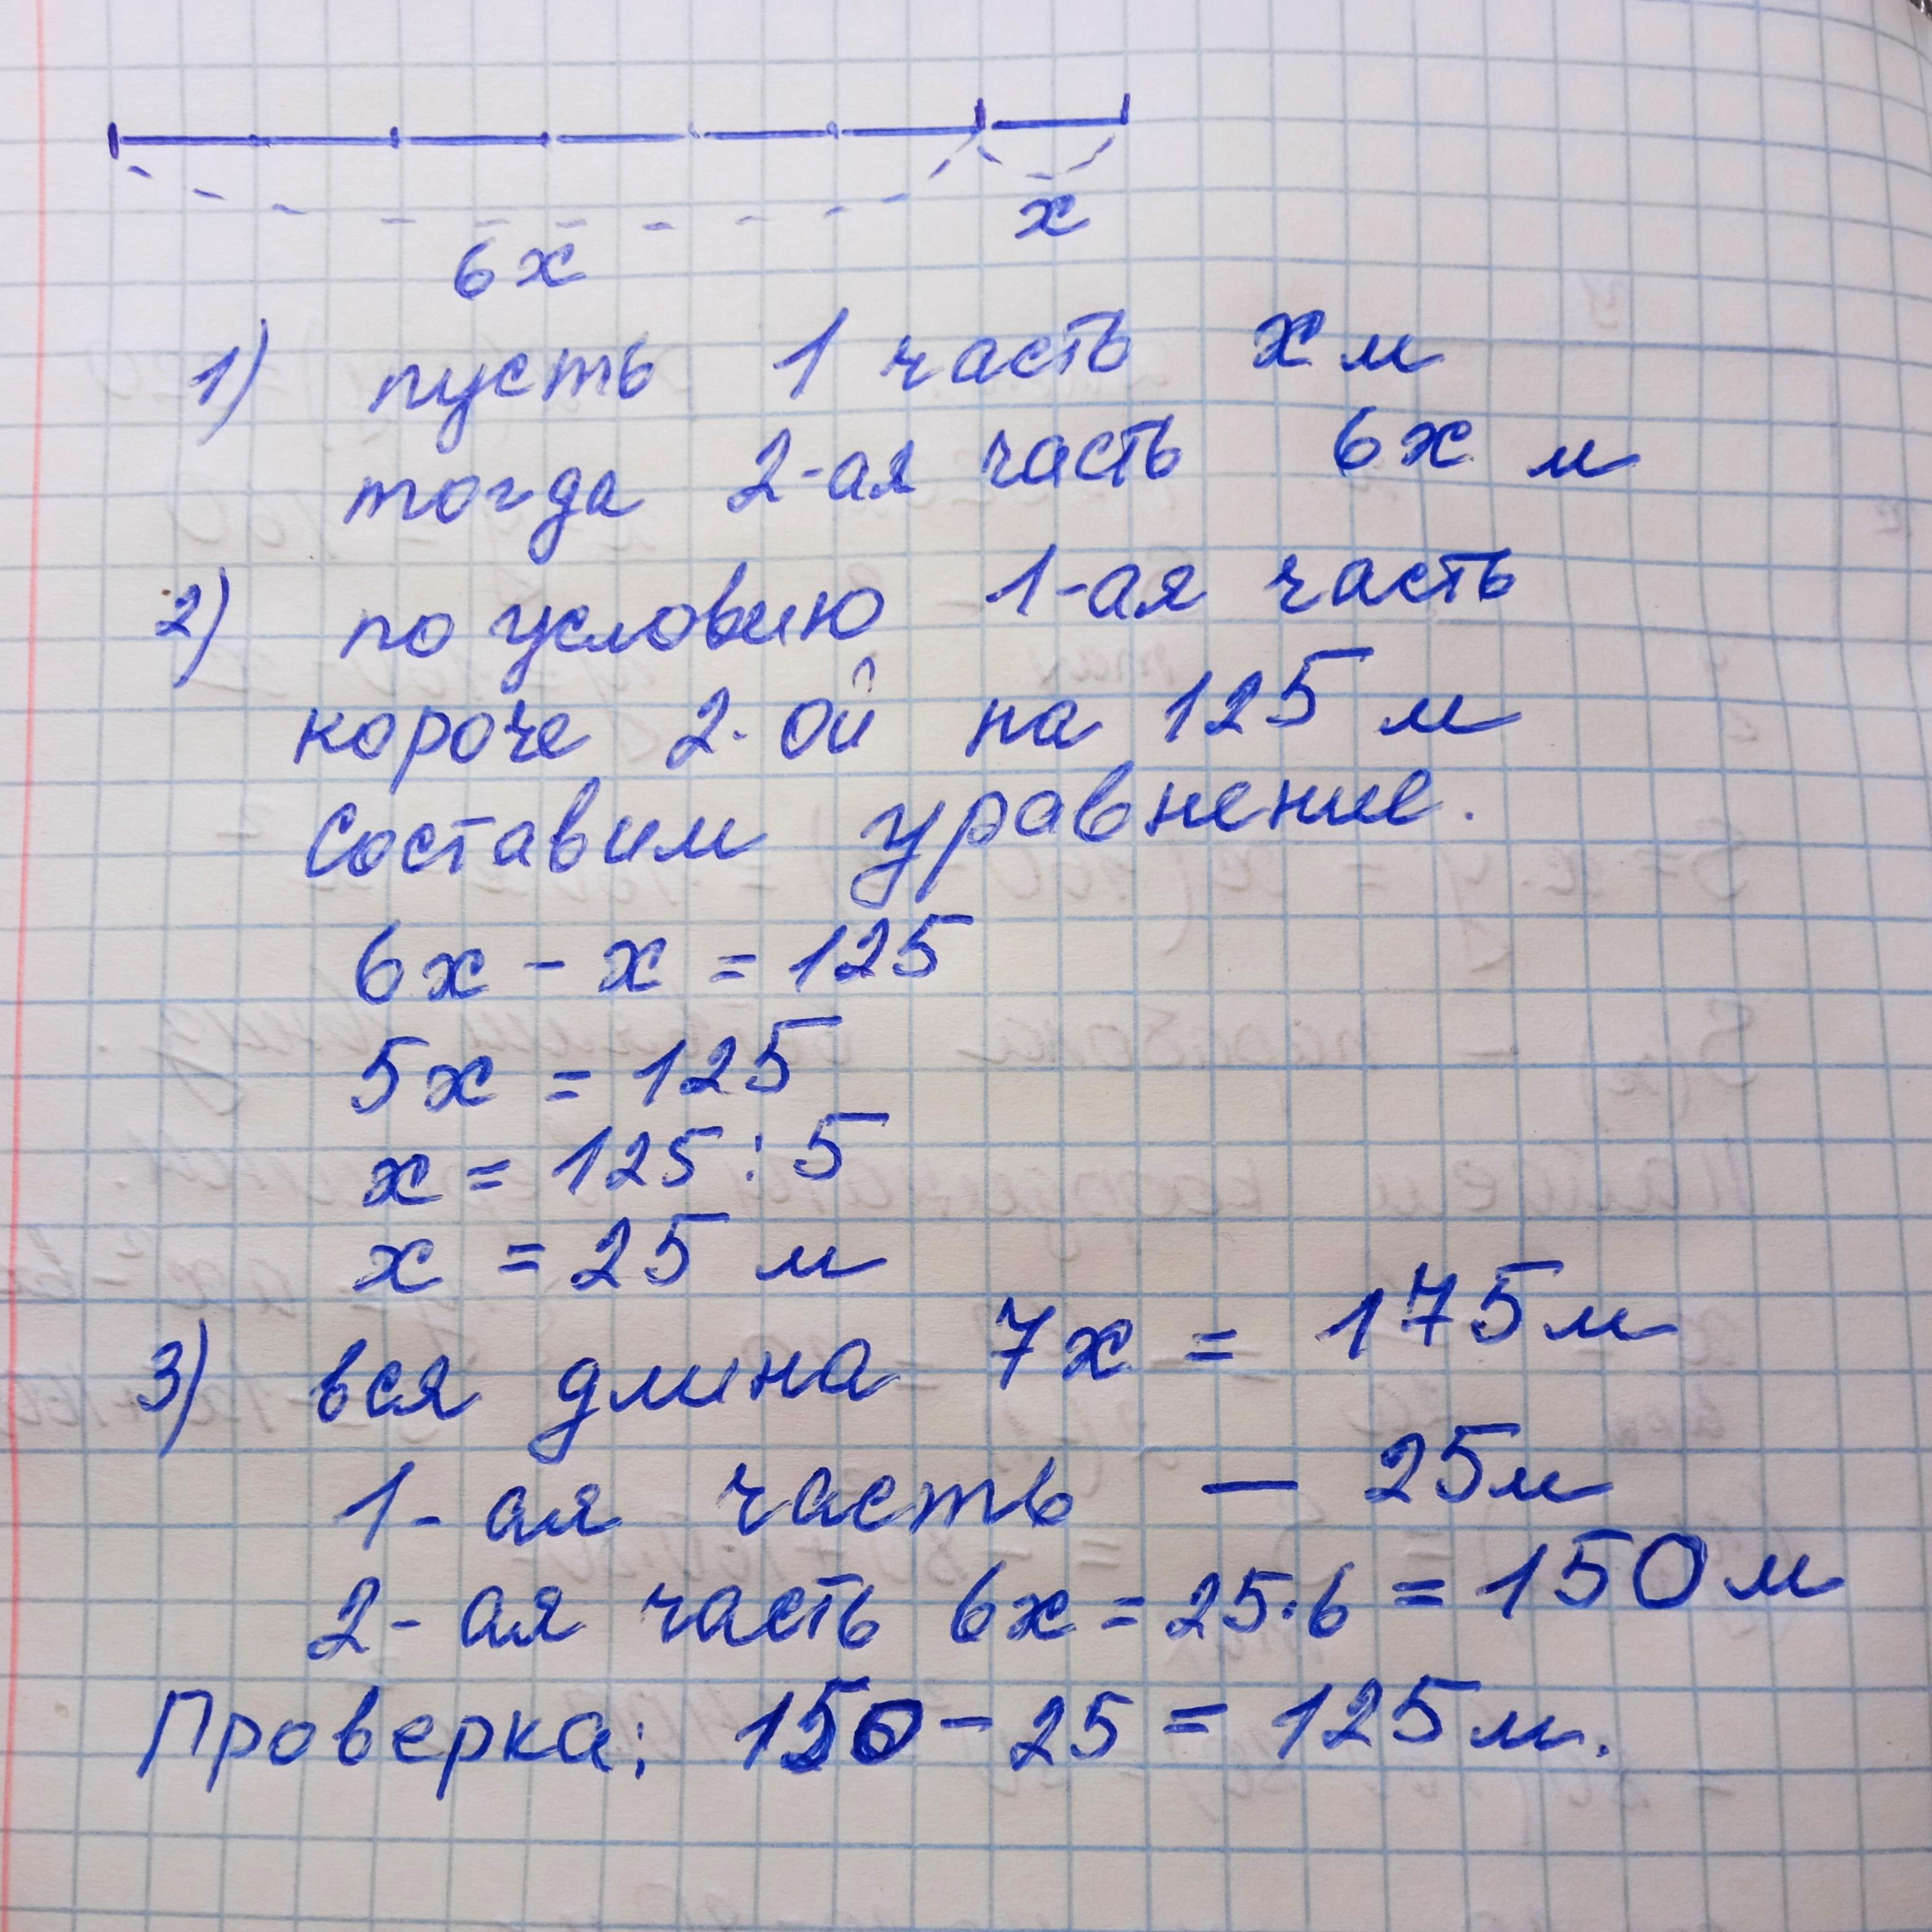 6x
x
1) пусть 1 часть x м
тогда 2-ая часть 6x м
2) по условию 1-ая часть
короче 2-ой на 125 м
Составим уравнение.
6x - x = 125
5x = 125
x = 125 : 5
x = 25 м
3) вся длина 7x = 175 м
1-ая часть — 25 м
2-ая часть 6x = 25·6 = 150 м
Проверка: 150 - 25 = 125 м.